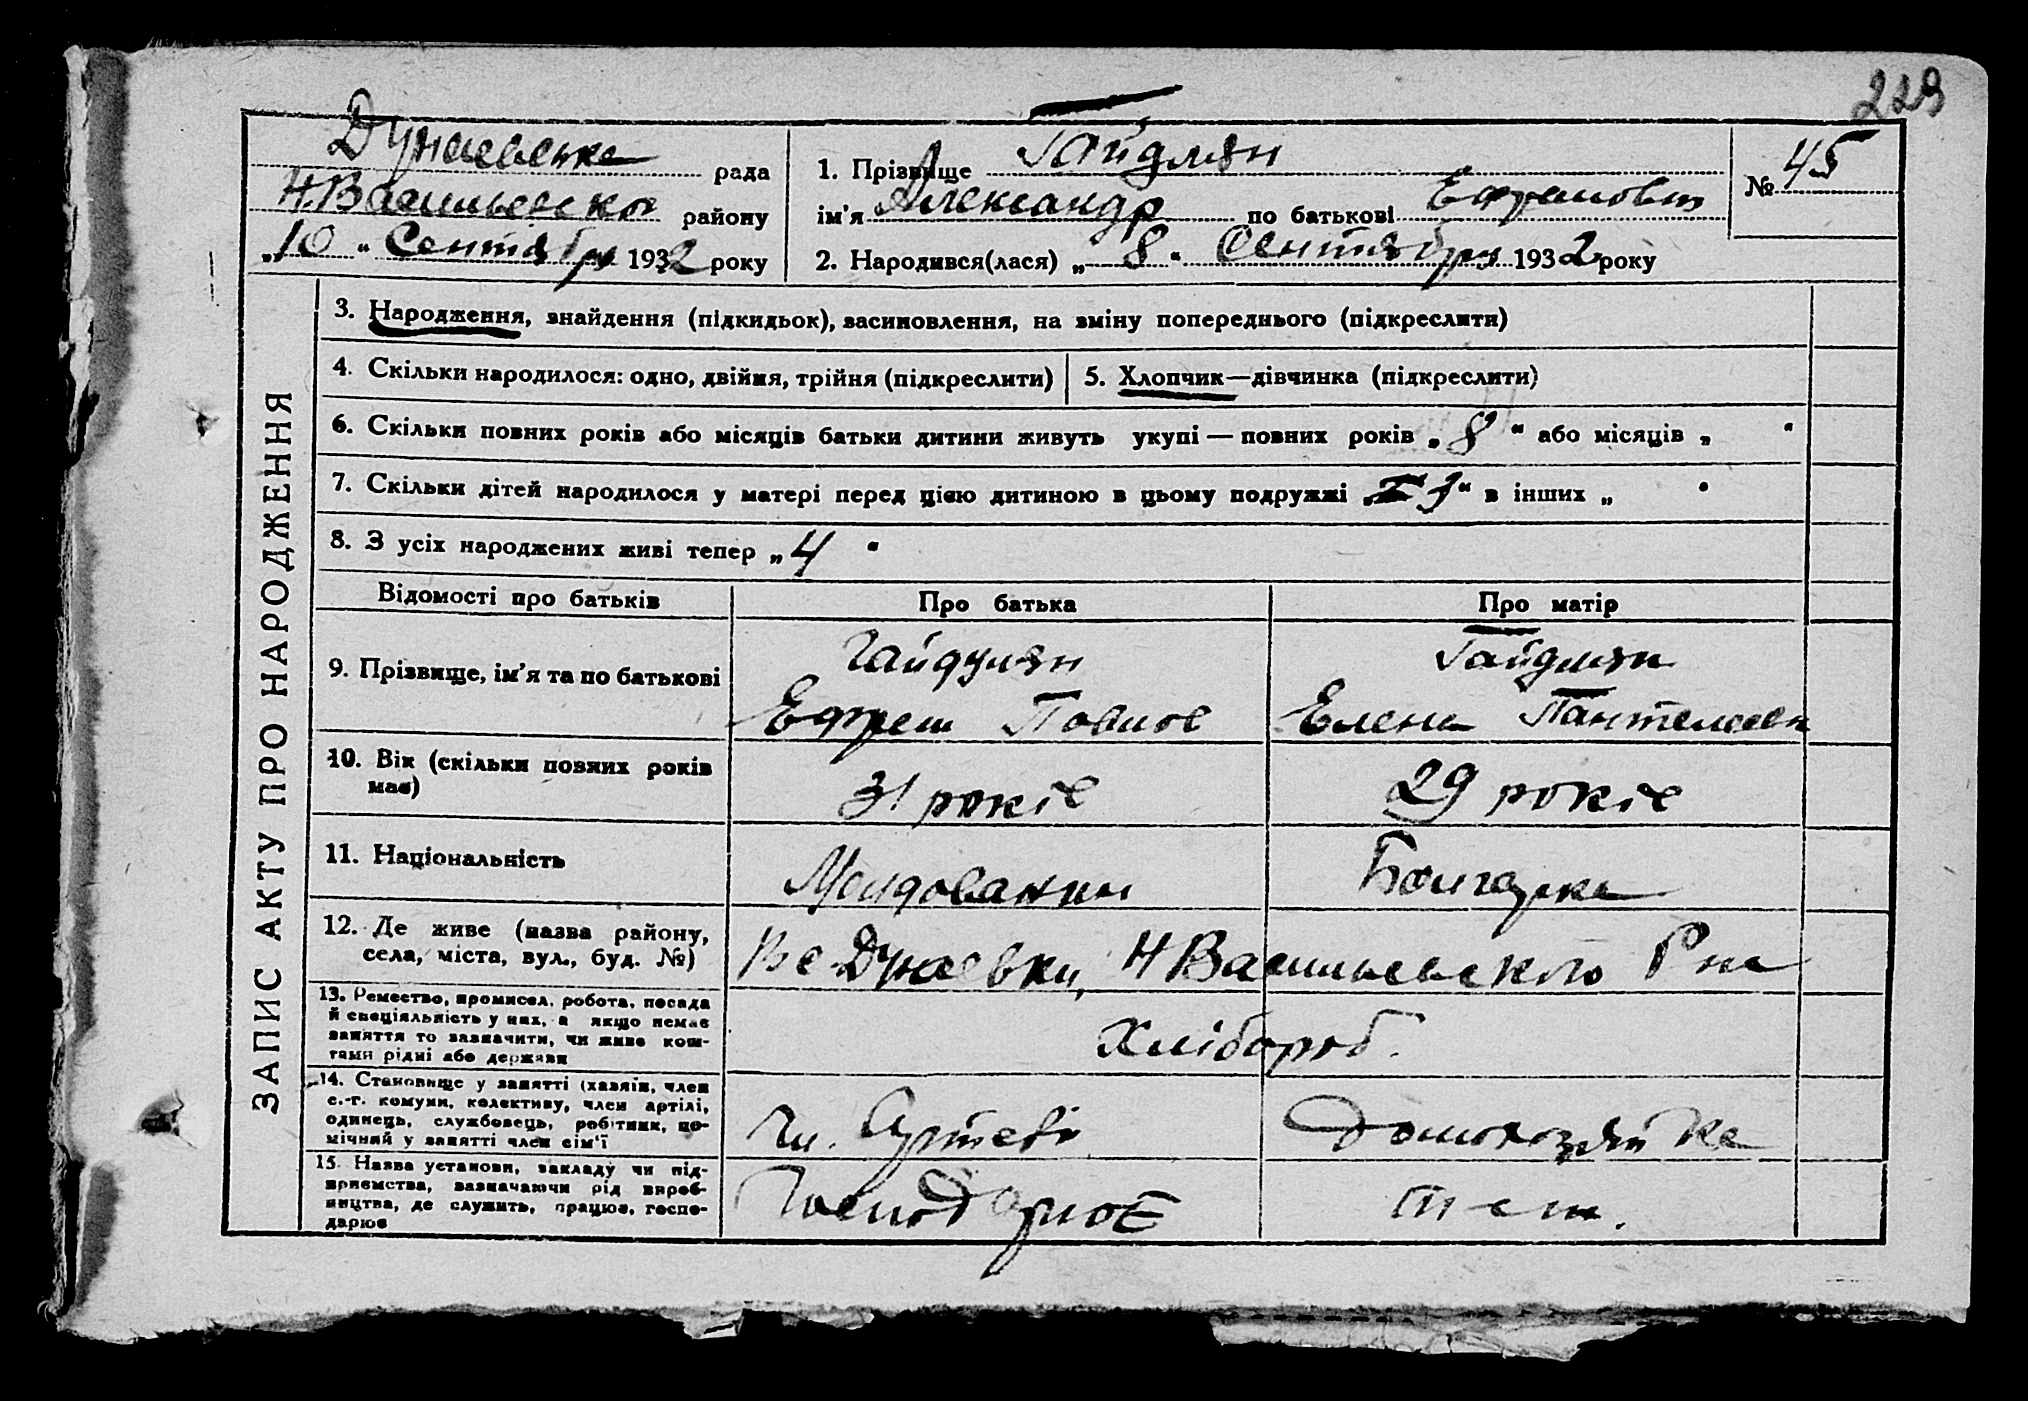 229
Дунаевська рада
Н.Васильевско району
„10“ Сентября 1932 року
1. Прізвище Гайдулян
ім'я Александр по батькові Ефремович
2. Народився(лася) „8“ Сентября 1932 року
№ 45
ЗАПИС АКТУ ПРО НАРОДЖЕННЯ
3. Народження, знайдення (підкидьок), засиновлення, на зміну попереднього (підкреслити)
4. Скільки народилося: одно, двійня, трійня (підкреслити)
5. Хлопчик—дівчинка (підкреслити)
6. Скільки повних років або місяців батьки дитини живуть укупі — повних років „8“ або місяців „ “
7. Скільки дітей народилося у матері перед цією дитиною в цьому подружжі „ “ в інших „ “
8. З усіх народжених живі тепер „4“
Відомості про батьків
Про батька
Про матір
9. Прізвище, ім'я та по батькові
Гайдулян
Ефрем Павлов
Гайдулян
Елена Пантелеевн
10. Вік (скільки повних років має)
31 років
29 років
11. Національність
Молдованин
Болгарка
12. Де живе (назва району,
села, міста, вул., буд. №)
В с Дунаевки, Н Васильевского Рна
13. Ремество, промисел, робота, посада
й спеціяльність у них, а якщо немає
заняття то зазначити, чи живе кош-
тами рідні або держави
Хлібороб.
14. Становище у занятті (хазяїн, член
с.-г. комуни, колективу, член артілі,
одинець, службовець, робітник, по-
мічний у занятті член сім'ї
Чл. Артелі
Домохозяйка
15. Назва установи, закладу чи під-
приємства, зазначаючи рід вироб-
ництва, де служить, працює, госпо-
дарює
Господарює
теж.